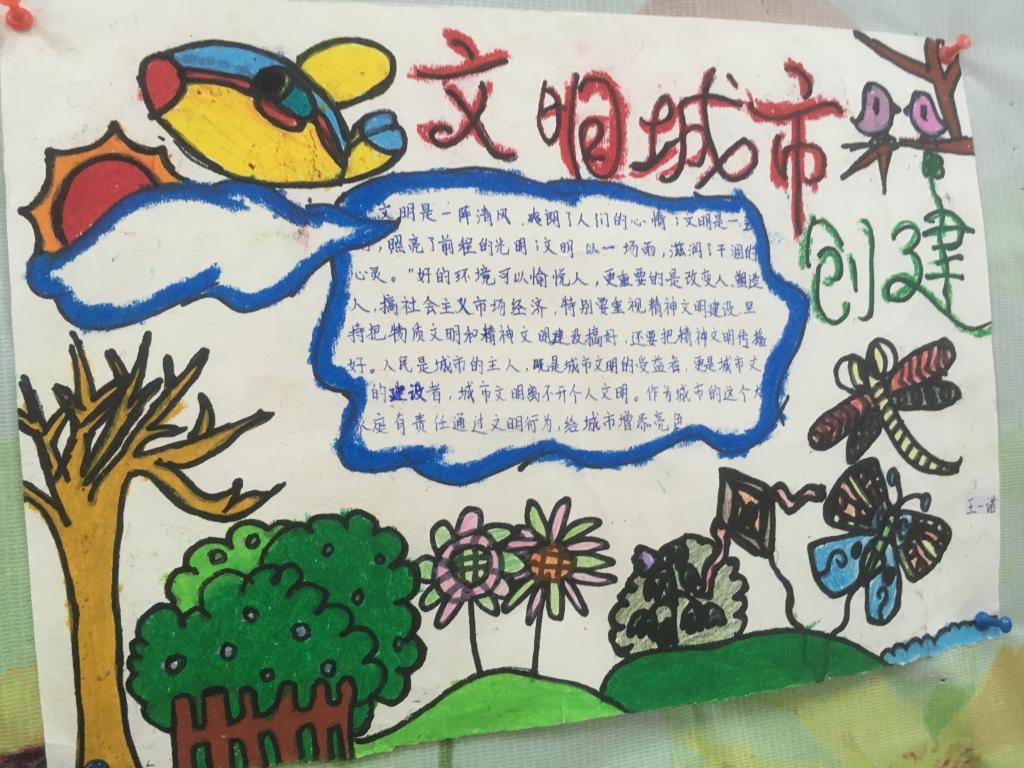 文明城市
创建
文明是一阵清风，爽朗了人们的心情；文明是一
，照亮了前程的光明；文明 以一场雨，滋润了干涸的
心灵。"好的环境可以愉悦人，更重要的是改变人、塑造
人，搞社会主义市场经济，特别要重视精神文明建设，坚
持把物质文明和精神文明建设搞好，还要把精神文明传播
好。人民是城市的主人，既是城市文明的受益者，更是城市文
的建设者，城市文明离不开个人文明。作为城市的这个大
家庭有责任通过文明行为，给城市增添亮色
王一诺